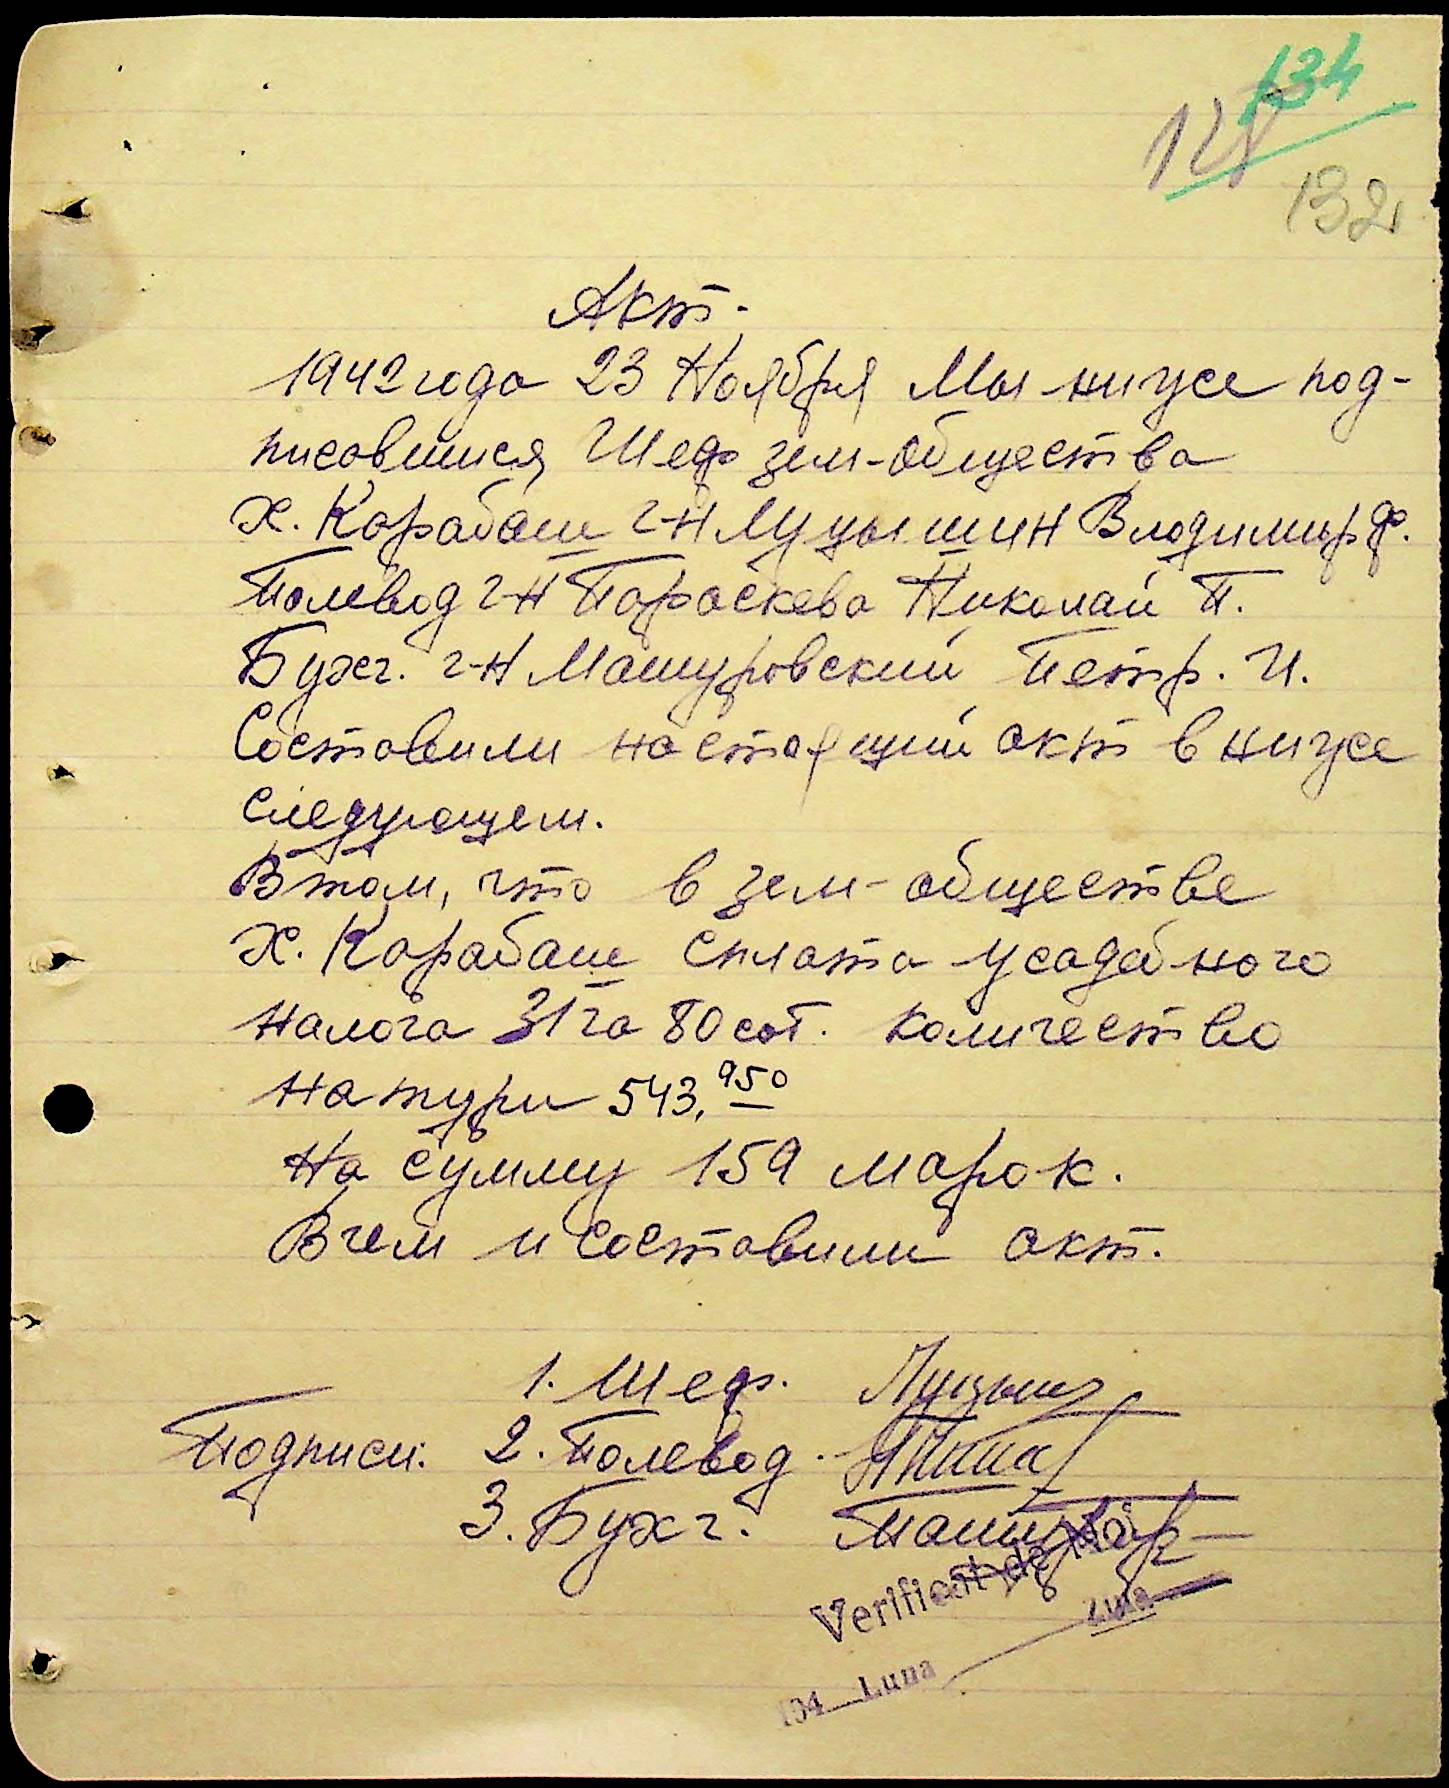 134
128
132
Акт.
1942 года 23 Ноября Мы ниже под-
писовшися Шеф зем-общества
х. Карабаш г-н Луцышин Владимир Ф.
Полевод г-н Параскева Николай П.
Бухг. г-н Машуровский Петр. И.
Составили настоящий акт в ниже
следующем.
В том, что в зем-обществе
х. Карабаш Сплата усадебного
налога 31 га 80 сот. количество
натури 543,950
На сумму 159 марок.
В чем и составили акт.
1. Шеф. Луцышин
Подписи: 2. Полевод.
3. Бухг. Машур
Verificat de Noi
194 Luna Ziua